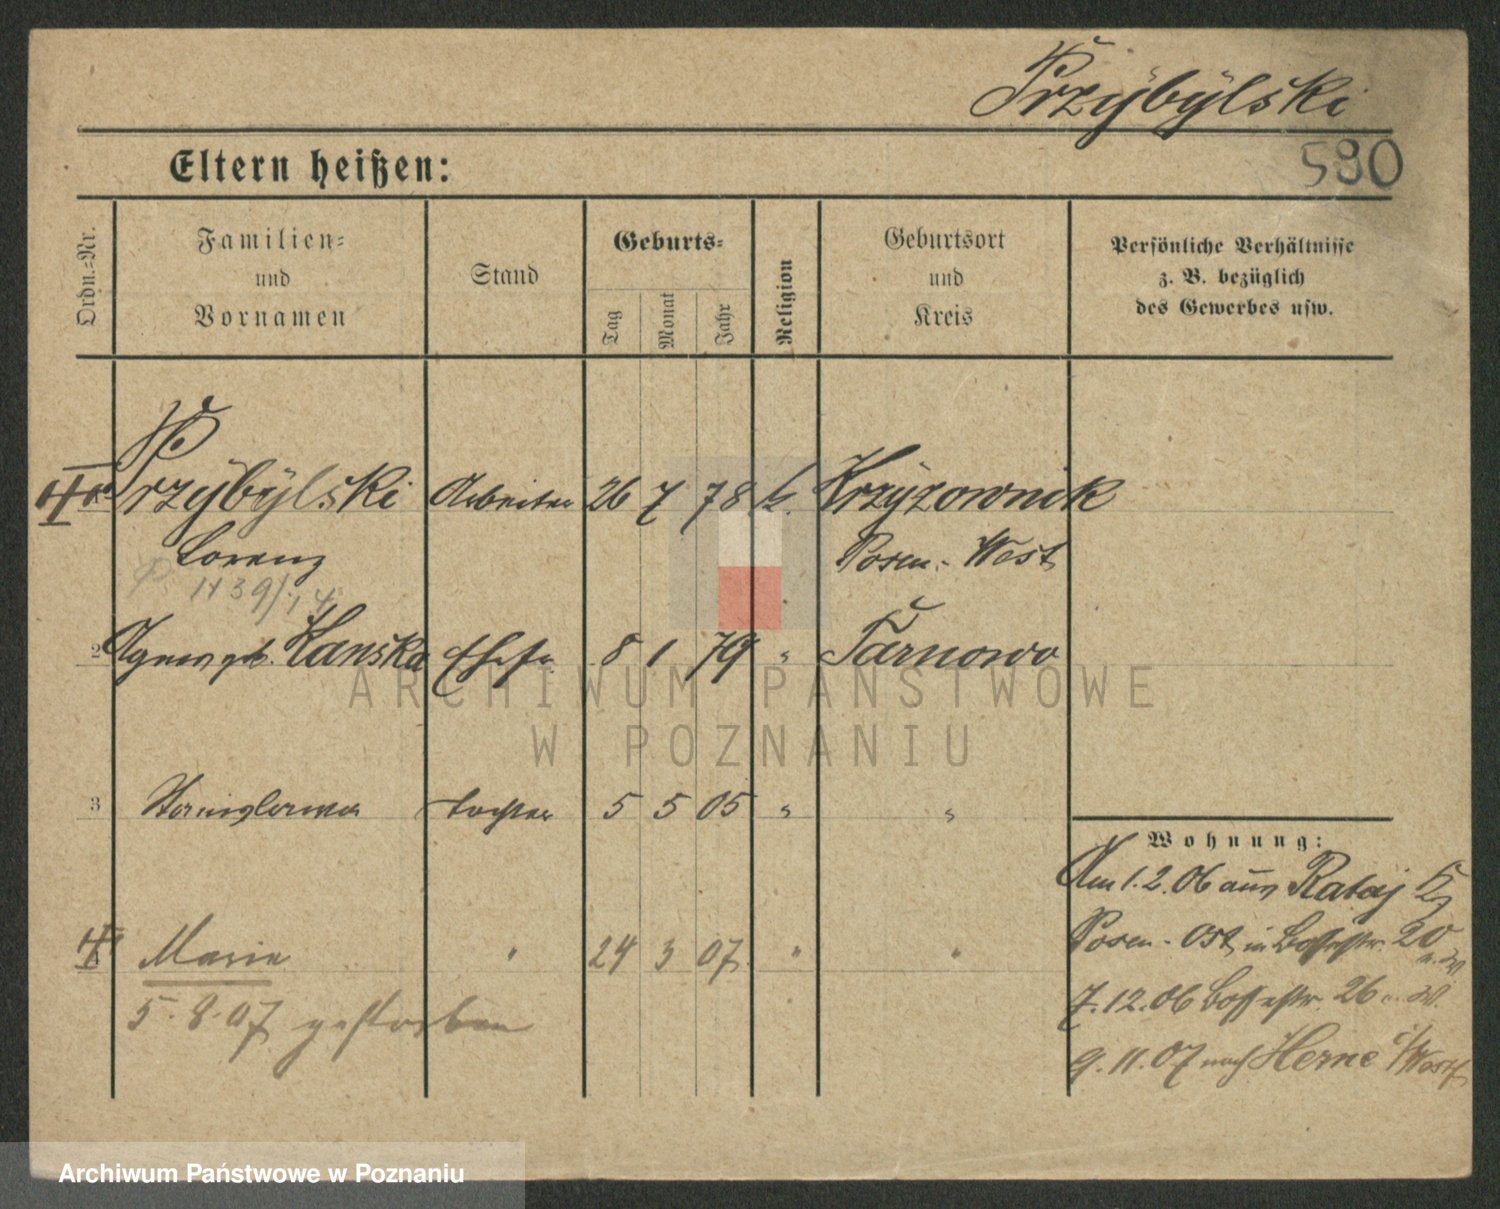 Przÿbÿlski
Eltern heißen:
580
Ordn.-Nr.
Familien-
und
Vornamen
Stand
Geburts-
Tag
Monat
Jahr
Religion
Geburtsort
und
Kreis
Persönliche Verhältnisse
z. B. bezüglich
des Gewerbes usw.
Przÿbÿlski Arbeiter 26 7 78 k. Krzÿzownik
Lorenz Posen-West
1439/14
2 Agnes geb. Kanska Ehefr. 8 1 79 " Tarnowo
3 Stanislawa Tochter 5 5 05 " "
Marie " 24 3 07 " "
5.8.07 gestorben
Wohnung:
Am 1.2.06 aus Rataj
Posen-Ost in Bosestr. 20
7.12.06 Bosestr. 26
9.11.07 nach Herne i/Westf
ARCHIWUM PAŃSTWOWE
W POZNANIU
Archiwum Państwowe w Poznaniu